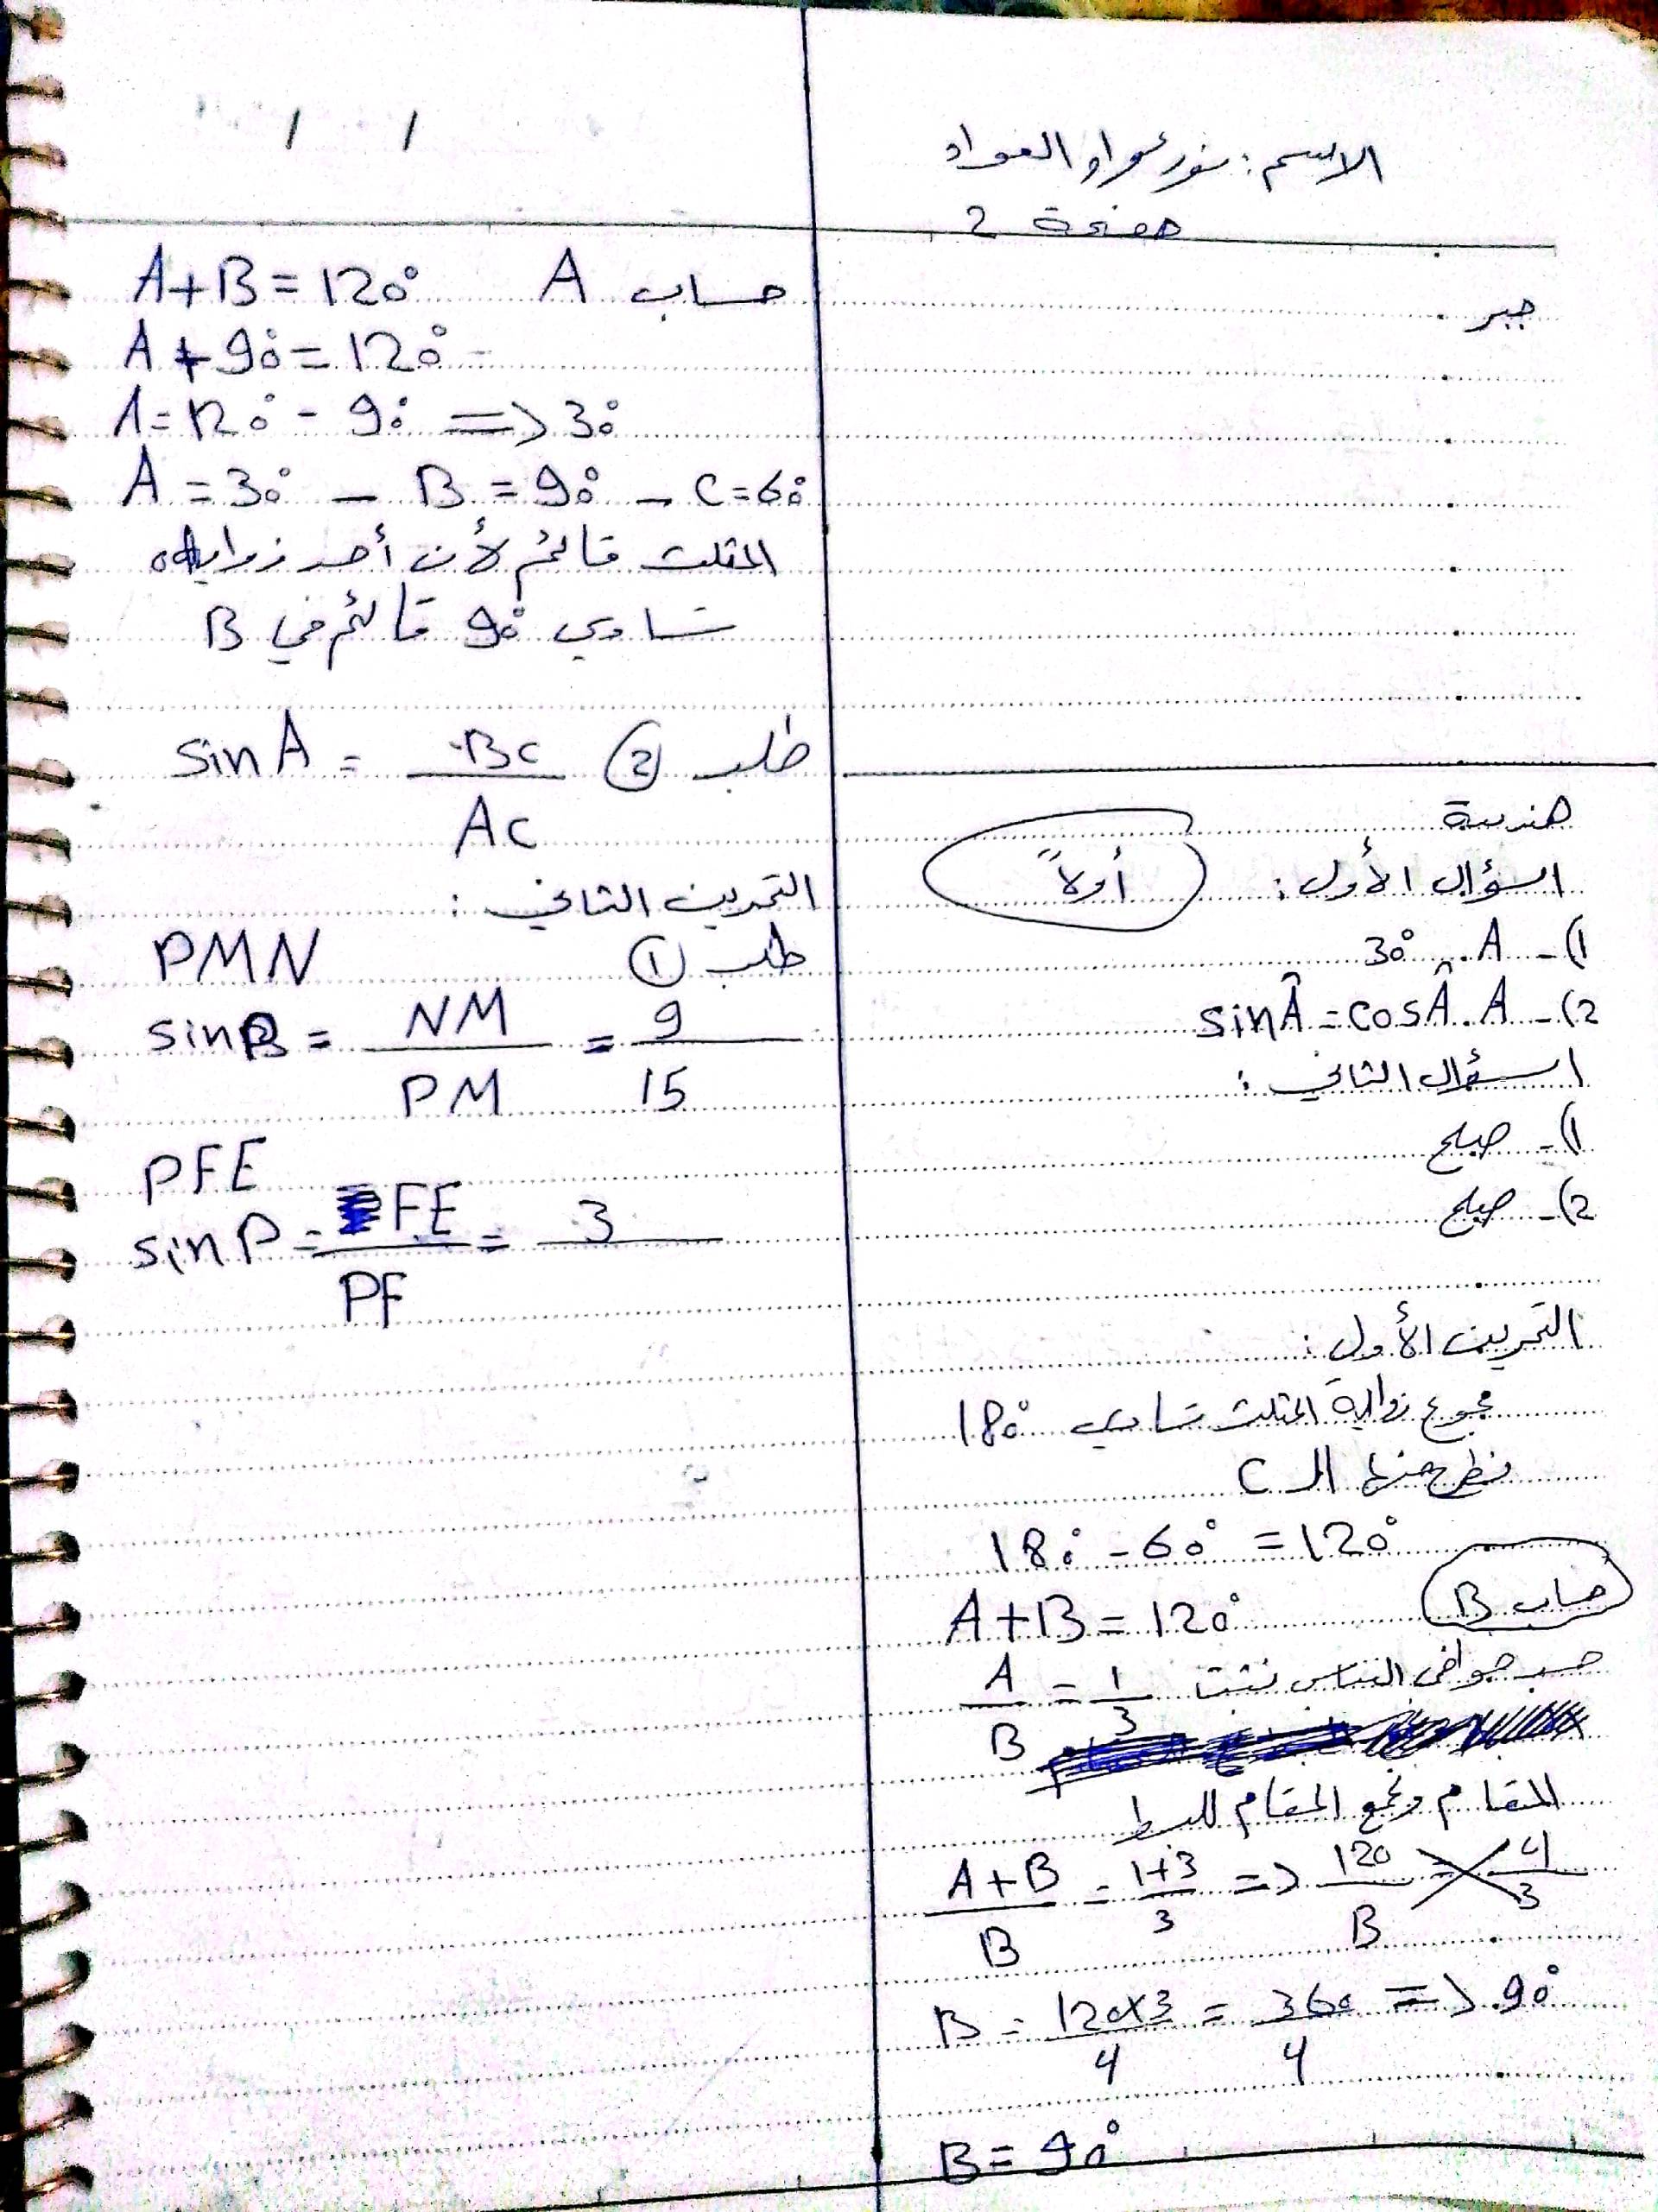 الاسم: نور
صفحة 2
جبر
هندسة
السؤال الأول: أولاً
1)- A. 30°
2)- A. sinÂ = cosÂ
السؤال الثاني:
1)- صح
2)- صح
التمرين الأول:
مجموع زواية المثلث تساوي 180°
نطرح منها الـ C
180° - 60° = 120°
حساب B
A+B = 120°
حسب خواص التناسب نثبت A/B = 1/3
المقام ونجمع المقام للبسط
A+B/B = 1+3/3 => 120/B = 4/3
B = 120×3/4 = 360/4 => 90°
B = 90°
حساب A A+B = 120°
A + 90° = 120°
A = 120° - 90° => 30°
A = 30° - B = 90° - C = 60°
المثلث قائم لأن أحد زواياه
تساوي 90° قائم في B
طلب ② sin A = BC/AC
التمرين الثاني:
طلب ① PMN
sin P = NM/PM = 9/15
PFE
sin P = FE/PF = 3